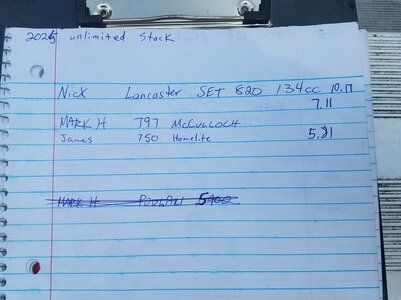 2025 unlimited Stock
Nick Lancaster SET 820 134cc 10.17
7.11
MARK H 797 McCULLOCH
James 750 Homelite 5.21
MARK H 5900